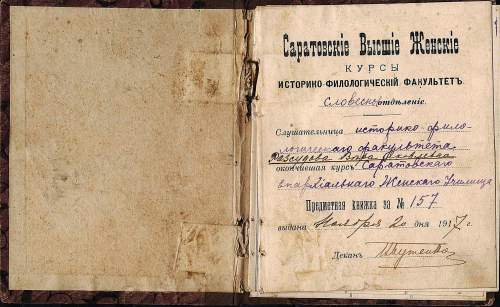 Саратовскіе Высшіе Женскіе
КУРСЫ
ИСТОРИКО-ФИЛОЛОГИЧЕСКІЙ ФАКУЛЬТЕТЪ.
Словесн. отдѣленіе.
Слушательница историко-фило-
логическаго факультета
Яковлевна
окончившая курсъ Саратовскаго
епархіальнаго Женскаго Училища
Предметная книжка за № 157
выдана Ноября 20 дня 1917 г.
Деканъ